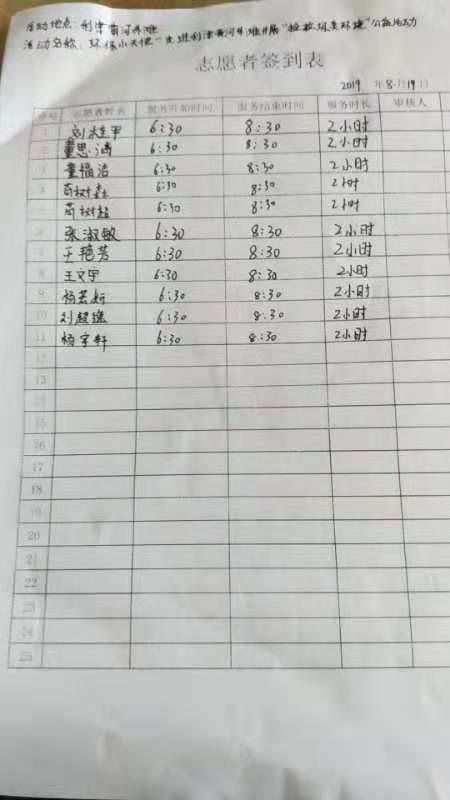 活动地点：利津黄河外滩
活动名称：环保小天使"走进利津黄河外滩开展"捡拾垃圾美环境"公益活动
志愿者签到表
2019 年 8 月 19 日
序号 志愿者姓名 服务开始时间 服务结束时间 服务时长 审核人
1 6:30 8:30 2小时
2 董思涵 6:30 8:30 2小时
3 董福洁 6:30 8:30 2小时
4 苟树森 6:30 8:30 2小时
苟树超 6:30 8:30 2小时
张淑敏 6:30 8:30 2小时
7 王艳芳 6:30 8:30 2小时
8 王文宇 6:30 8:30 2小时
9 杨芸妍 6:30 8:30 2小时
10 刘超逸 6:30 8:30 2小时
11 杨宇轩 6:30 8:30 2小时
12
13
14
15
16
17
18
19
20
21
22
23
24
25